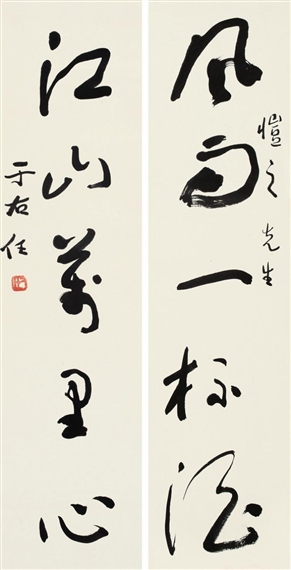 風雨一杯酒
愷之先生
江山萬里心
于右任